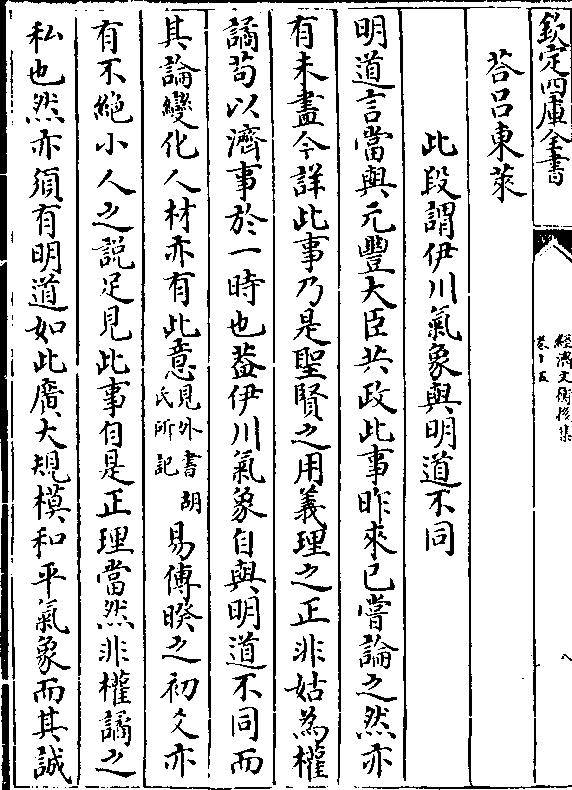 欽定四庫全書
經濟文衡後集
卷十五
八
荅吕東萊
此段謂伊川氣象與明道不同
明道言當與元豐大臣共政此事昨來已嘗論之然亦
有未盡今詳此事乃是聖賢之用義理之正非姑為權
譎苟以濟事於一時也葢伊川氣象自與明道不同而
其論變化人材亦有此意見外書胡氏所記易傳暌之初爻亦
有不絶小人之説足見此事自是正理當然非權譎之
私也然亦須有明道如此廣大規模和平氣象而其誠